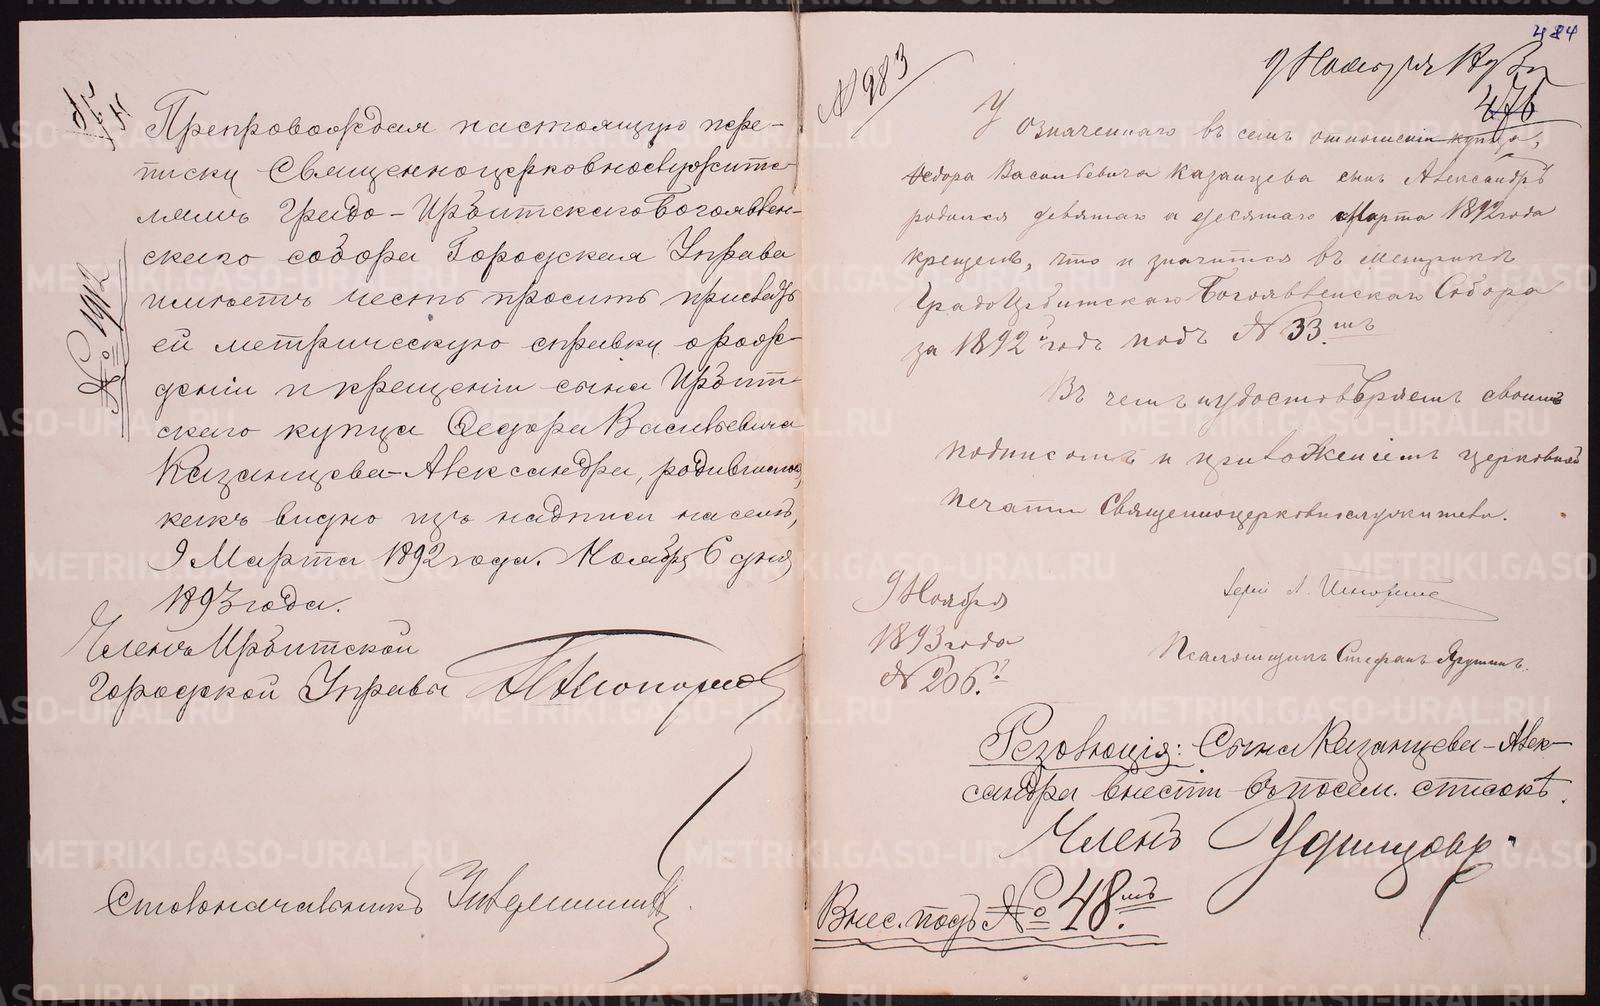 № 1912
Препровождая настоящую пере-
писку Священноцерковнослужите-
лямъ Градо-Ирбитскаго Богоявлен-
скаго собора Городская Управа
имѣетъ честь просить прислать
ей метрическую справку о рож-
деніи и крещеніи сына Ирбит-
скаго купца Ѳедора Васильевича
Казанцева-Александра, родившагося,
какъ видно изъ надписи на семъ,
9 Марта 1892 года. Ноября 6 дня
1893 года.
Членъ Ирбитской
Городской Управы
Столоначальникъ
484
№ 983
9 Ноября
476
У означеннаго въ семъ отношеніи купца,
Ѳедора Васильевича Казанцева сынъ Александръ
родился девятаго а десятаго Марта 1892 года
крещенъ, что и значится въ метрикѣ
Градо Ирбитскаго Богоявленскаго Собора
за 1892 годъ подъ № 33.мъ
Въ чемъ и удостовѣряемъ своимъ
подписомъ и приложеніемъ церковной
печати Священноцерковнослужители.
9 Ноября
1893 года
№ 206.
Псаломщикъ Стефанъ
Резолюція: Сына Казанцева-Алек-
сандра внести въ посем. списокъ.
Членъ
Внес. подъ № 48.мъ
METRIKI.GASO-URAL.RU